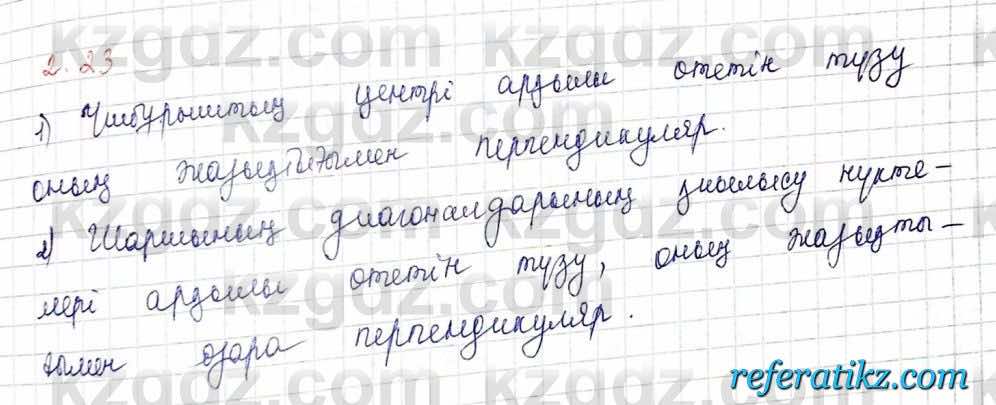 2.23
1) Үшбұрыштың центрі арқылы өтетін түзу
оның жазықтығымен перпендикуляр.
2) Шаршының диагоналдарының қиылысу нүкте-
лері арқылы өтетін түзу, оның жазықты-
ғымен өзара перпендикуляр.
kzgdz.com
referatikz.com